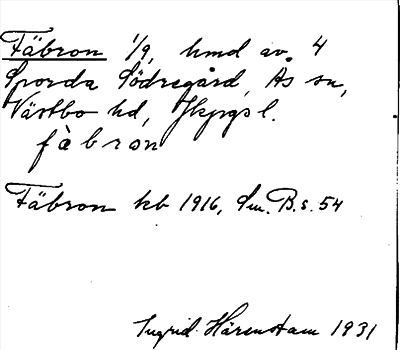 Fäbron 1/9, hmd av 4
Sporda Södregård, Ås sn,
Västbo hd, Jkpgs l.
fàbron
Fäbron kb 1916, Sm. B. s. 54
Ingrid Härenstam 1931